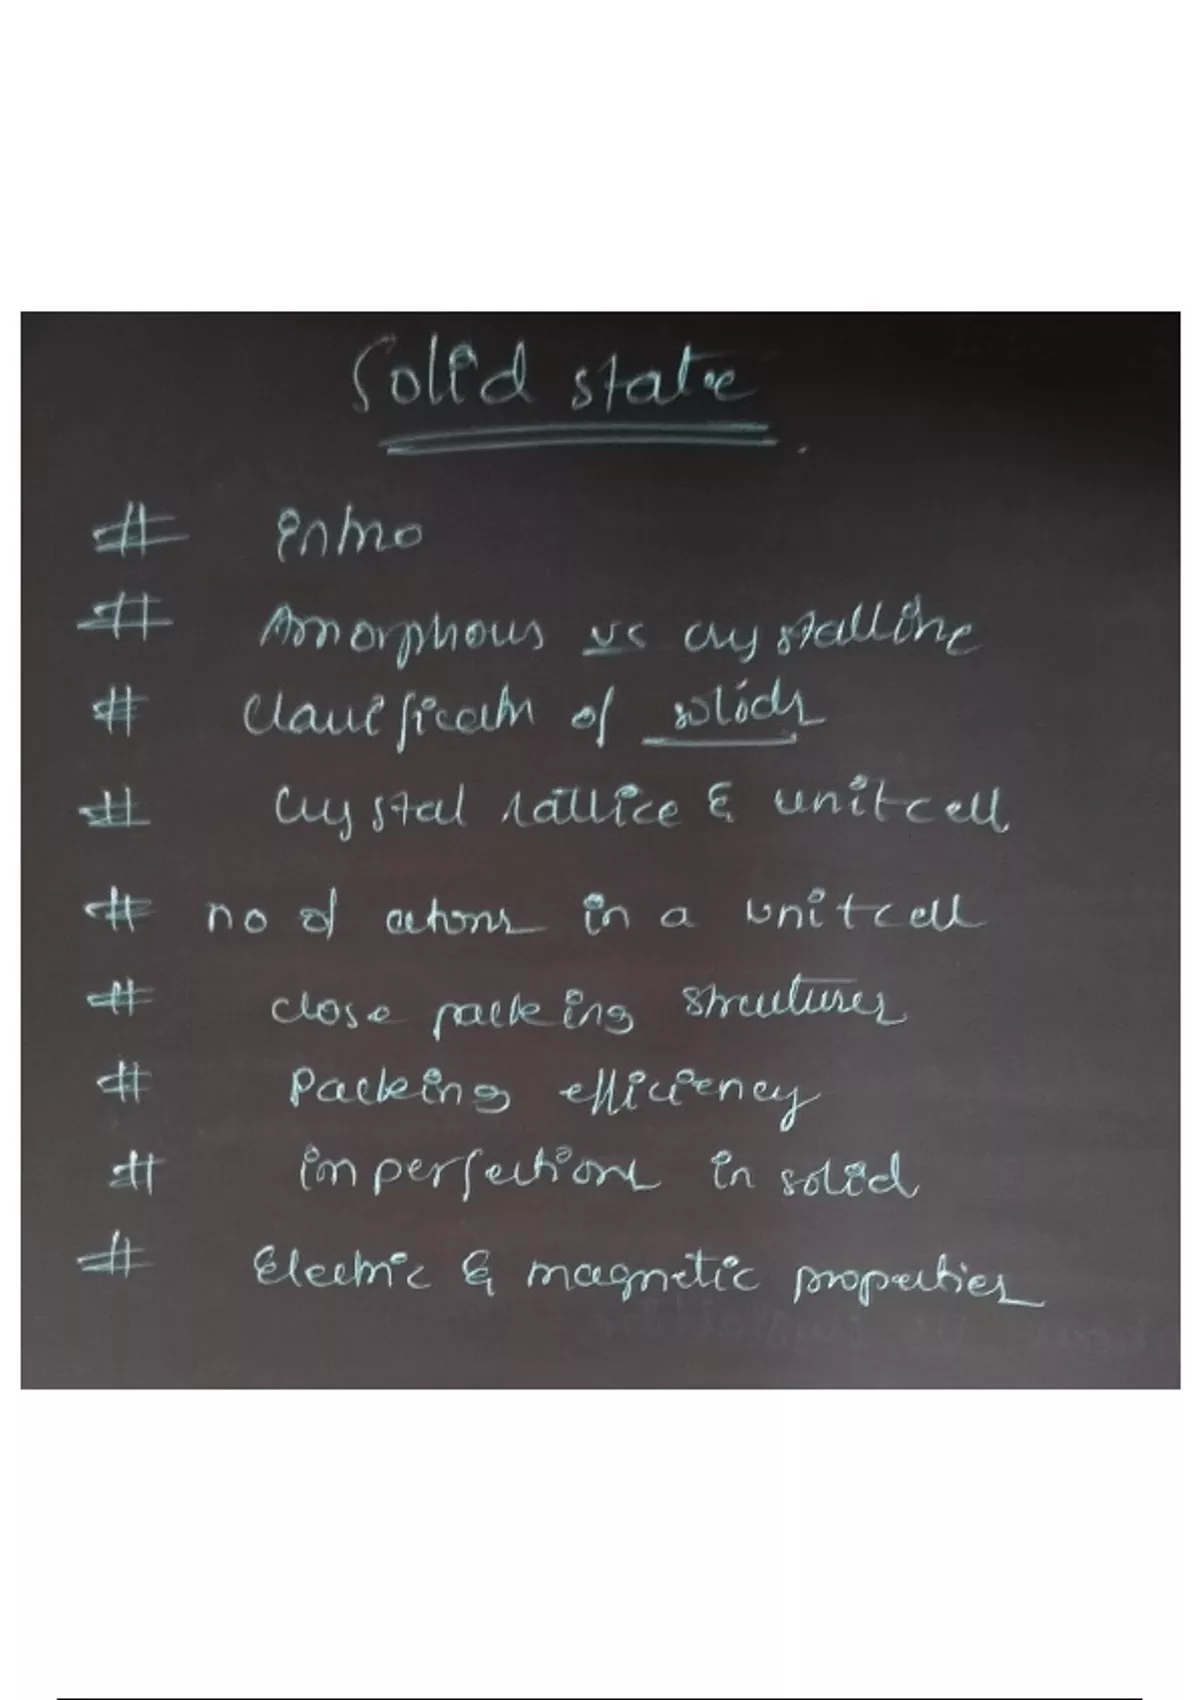 Solid state
# intro
# Amorphous vs crystalline
# Classification of solids
# Crystal lattice & unitcell
# no of atoms in a unitcell
# close packing structures
# Packing efficiency
# imperfections in solid
# Electric & magnetic properties